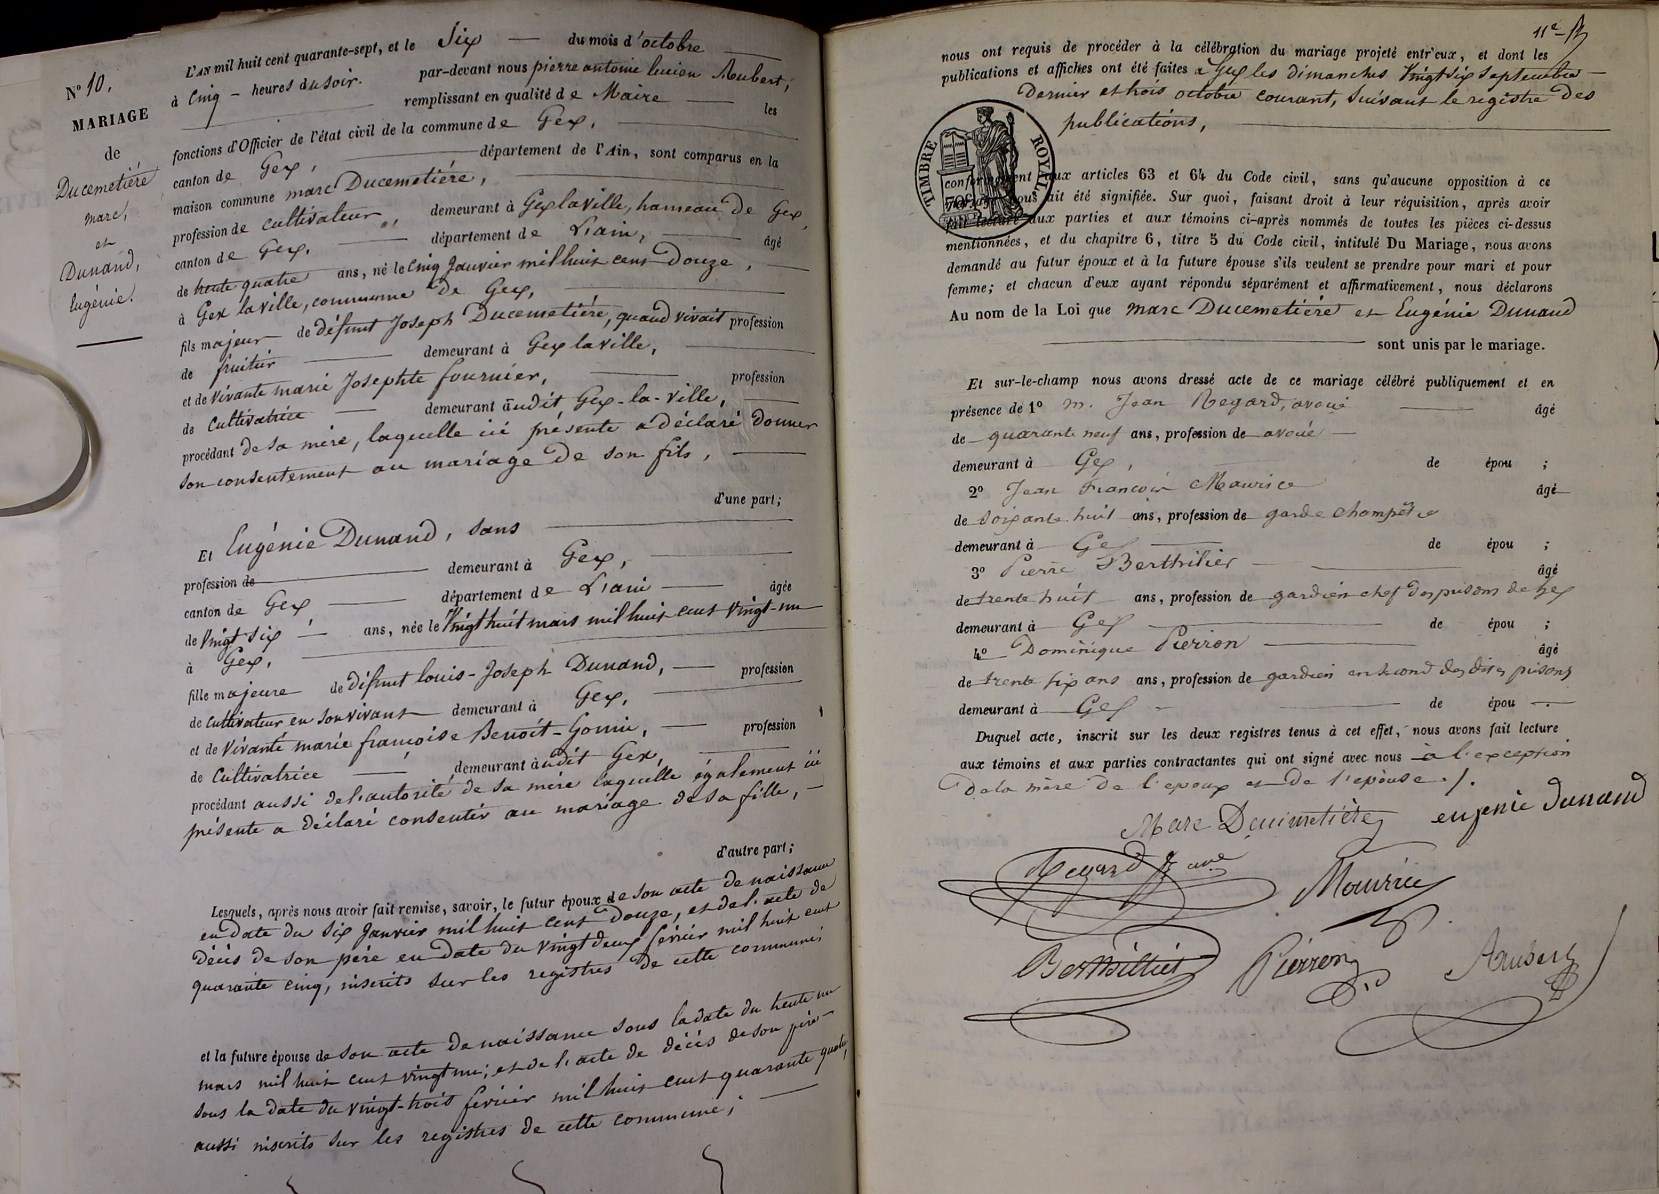 N° 10.
MARIAGE
de
Ducemetiére
marc,
et
Dunand,
Eugénie.
L'AN mil huit cent quarante-sept, et le Six du mois d'octobre
à Cinq heures du soir. par-devant nous pierre antoine lucien Aubert,
remplissant en qualité de Maire les
fonctions d'Officier de l'état civil de la commune de Gex,
canton de Gex, département de l'Ain, sont comparus en la
maison commune marc Ducemetiére,
profession de cultivateur, demeurant à Gex la ville, hameau de Gex,
canton de Gex, département de L'ain, âgé
de trente quatre ans, né le Cinq Janvier mil huit cent Douze,
à Gex la ville, commune de Gex,
fils majeur de défunt Joseph Ducemetiére, quand vivait profession
de fruitier demeurant à Gex la ville,
et de Vivante marie Josephte fournier, profession
de Cultivatrice demeurant audit Gex-la-ville,
procédant de sa mére, laquelle ici présente a déclaré donner
son consentement au mariage de son fils,
d'une part;
Et Eugénie Dunand, sans
profession de demeurant à Gex,
canton de Gex, département de L'ain âgée
de Vingt six ans, née le Vingt huit mars mil huit cent vingt-un
à Gex,
fille majeure de défunt louis-Joseph Dunand, profession
de cultivateur en son vivant demeurant à Gex,
et de Vivante marie françoise Benoit-Gonin, profession
de Cultivatrice demeurant audit Gex,
procédant aussi de l'autorité de sa mére laquelle également ici
présente a déclaré consentir au mariage de sa fille,
d'autre part;
Lesquels, après nous avoir fait remise, savoir, le futur époux de son acte de naissance
en date du Six Janvier mil huit cent Douze, et de l'acte de
décés de son pére en date du vingt deux février mil huit cent
quarante cinq, inscrits sur les registres de cette commune;
et la future épouse de son acte de naissance sous la date du trente un
mars mil huit cent vingt un; et de l'acte de décés de son pére
sous la date du vingt-trois février mil huit cent quarante quatre,
aussi inscrits sur les registres de cette commune;
11e
nous ont requis de procéder à la célébration du mariage projeté entr'eux, et dont les
publications et affiches ont été faites à Gex les dimanches Vingt six Septembre
Dernier et trois octobre courant, suivant le registre des
publications,
TIMBRE ROYAL
conformément aux articles 63 et 64 du Code civil, sans qu'aucune opposition à ce
mariage nous ait été signifiée. Sur quoi, faisant droit à leur réquisition, après avoir
fait lecture aux parties et aux témoins ci-après nommés de toutes les pièces ci-dessus
mentionnées, et du chapitre 6, titre 5 du Code civil, intitulé Du Mariage, nous avons
demandé au futur époux et à la future épouse s'ils veulent se prendre pour mari et pour
femme; et chacun d'eux ayant répondu séparément et affirmativement, nous déclarons
Au nom de la Loi que marc Ducemetiére et Eugénie Dunand
sont unis par le mariage.
Et sur-le-champ nous avons dressé acte de ce mariage célébré publiquement et en
présence de 1° M. Jean Regard, avoué âgé
de quarante neuf ans, profession de avoué
demeurant à Gex, de épou ;
2° Jean François Maurice âgé
de soixante huit ans, profession de garde champêtre
demeurant à Gex de épou ;
3° Pierre Berthilier âgé
de trente huit ans, profession de gardien chef des prisons de Gex
demeurant à Gex de épou ;
4° Dominique Pierron âgé
de trente six ans ans, profession de gardien en second des dites prisons
demeurant à Gex de épou
Duquel acte, inscrit sur les deux registres tenus à cet effet, nous avons fait lecture
aux témoins et aux parties contractantes qui ont signé avec nous à l'exception
De la mère de l'epoux et de l'epouse ./.
Marc Ducimetière eugenie dunand
Regard Jn avé Maurice
Berthillier Pierron Aubert